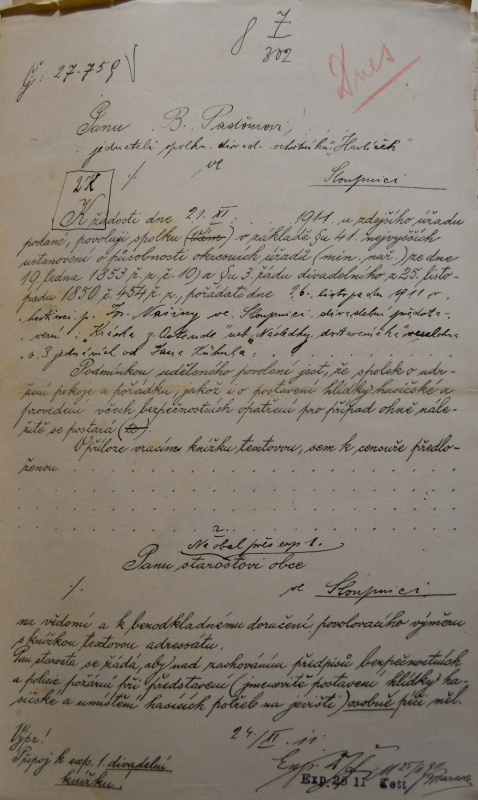 8 7/802
Dnes
Čj: 27.759
Panu B.
jednateli spolku divad. ochotníků „Havlíček“
./. ve
Sloupnici
2K
K žádosti dne 21. XI. 1911 u zdejšího úřadu
podané, povoluji spolku (Vám) v základě §u 41. nejvyšších
ustanovení o působnosti okresních úřadů (min. nař.) ze dne
19. ledna 1853 ř. z. č. 10) a §u 3. řádu divadelního z 25. listo-
pádu 1850 č. 454 ř. z., pořádati dne 26. listopadu 1911 v
hostinci p. ve. Sloupnici divadelní předsta-
vení: „Kráska z Ostende“ neb „Následky dostaveníčka“ veselohra
o 3 jednáních od Jana
Podmínkou uděleného povolení jest, že spolek o udr-
žení pokoje a pořádku, jakož i o postavení hlídky hasičské a
provedení všech bezpečnostních opatření pro případ ohně nále-
žitě se postará (te).
V příloze vracím knížku textovou, sem k censuře předlo-
ženou
2.
Na obal přes exp. 1.
Panu starostovi obce
./. ve Sloupnici
na vědomí a k bezodkladnému doručení povolovacího výměru
s knížkou textovou adressátu.
Pan starosta se žádá, aby nad zachováním předpisů bezpečnostních
a policie požární při představení (jmenovitě postavení hlídky ha-
sičské a umístění hasících potřeb na jevišti) osobně péči měl.
24/XI. 11.
Vypr!
Připoj k exp. 1. divadelní
knížku.
Exp. 25 11 Kett